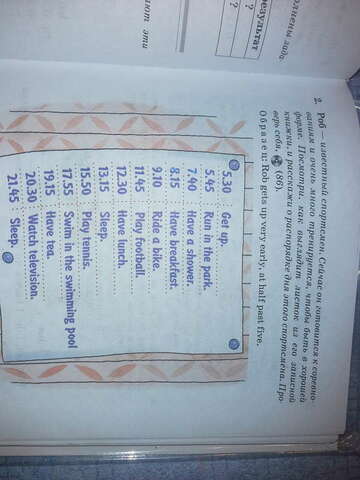 олнены зада-
езультат
?
?
ают эти
2. Роб — известный спортсмен. Сейчас он готовится к соревно-
ваниям и очень много тренируется, чтобы быть в хорошей
форме. Посмотри, как выглядит листок из его записной
книжки, и расскажи о распорядке дня этого спортсмена. Про-
верь себя, (86).
Образец: Rob gets up very early, at half past five.
5.30 Get up.
5.45 Run in the park.
7.40 Have a shower.
8.15 Have breakfast.
9.10 Ride a bike.
11.45 Play football.
12.30 Have lunch.
13.15 Sleep.
15.50 Play tennis.
17.55 Swim in the swimming pool
19.15 Have tea.
20.30 Watch television.
21.45 Sleep.